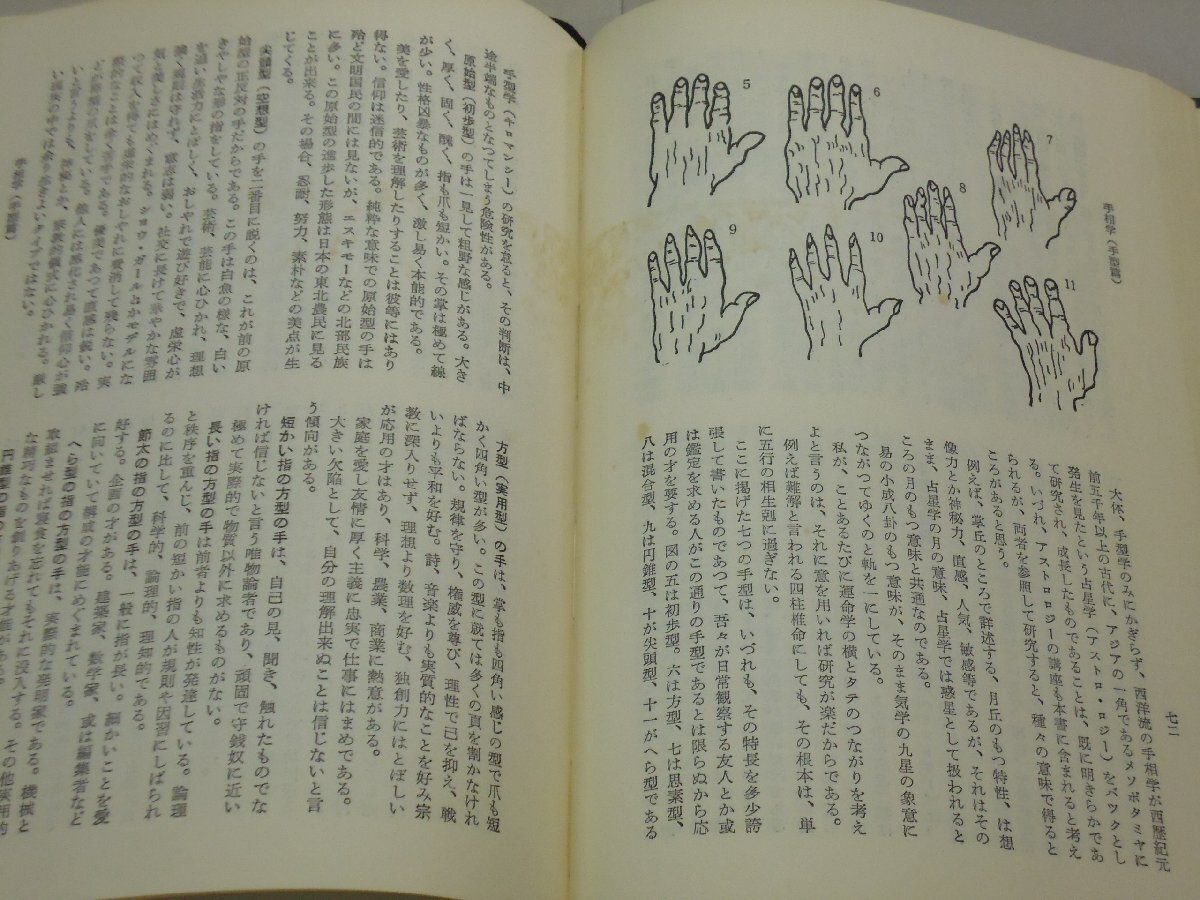 七二
大体、手型学のみにかぎらず、西洋流の手相学が西歴紀元
前五千年以上の古代に、アジアの一角であるメソポタミヤに
発生を見たという占星学（アストロ・ロジー）をバックとし
て研究され、成長したものであることは、既に明きらかであ
る。いづれ、アストロロジーの講座も本書に含まれると考え
られるが、両者を参照して研究すると、種々の意味で得ると
ころがあると思う。
例えば、掌丘のところで詳述する、月丘のもつ特性、は想
像力とか神秘力、直感、人気、敏感等であるが、それはその
まま、占星学の月の意味、占星学では惑星として扱われると
ころの月のもつ意味と共通なのである。
易の小成八卦のもつ意味が、そのまま気学の九星の象意に
つながつてゆくのと軌を一にしている。
私が、ことあるたびに運命学の横とタテのつながりを考え
よと言うのは、それに意を用いれば研究が楽だからである。
例えば難解と言われる四柱椎命にしても、その根本は、単
に五行の相生剋に過ぎない。
ここに掲げた七つの手型は、いづれも、その特長を多少誇
張して書いたものであつて、吾々が日常観察する友人とか或
は鑑定を求める人がこの通りの手型であるとは限らぬから応
用の才を要する。図の五は初歩型。六は方型、七は思索型、
八は混合型、九は円錐型、十が尖頭型、十一がへら型である
手相学（手型篇）
5
6
7
8
9
10
11
手相学（キロマンシー）の研究を怠ると、その判断は、中
途半端なものとなつてしまう危険性がある。
原始型（初歩型）の手は一見して粗野な感じがある。大き
く、厚く、固く、醜く、指も爪も短かい。その掌は極めて線
が少い。性格凶暴なものが多く、激し易く本能的である。
美を愛したり、芸術を理解したりすることは彼等にはあり
得ない。信仰は迷信的である。純粋な意味での原始型の手は
殆ど文明国民の間には見ないが、エスキモーなどの北部民族
に多い。この原始型の進歩した形態は日本の東北農民に見る
ことが出来る。その場合、忍耐、努力、素朴などの美点が生
じてくる。
尖頭型（空想型）の手を二番目に説くのは、これが前の原
始型の正反対の手だからである。この手は白魚の様な、白い
きやしやな形の指をしている。芸術、芸能に心ひかれ、理想
を追い活力にとぼしく、おしやれで遊び好きで、虚栄心が
強く
意志は弱い。社交に長けて華やかな雰囲
気と優しさにはめぐまれる。ショウ・ガールとかモデルにな
方型（実用型）の手は、掌も指も四角い感じの型で爪も短
かく四角い型が多い。この型に就ては多くの頁を割かなけれ
ばならない。規律を守り、権威を尊び、理性で己を抑え、戦
いよりも平和を好む。詩、音楽よりも実質的なことを好み宗
教に深入りせず、理想より数理を好む、独創力にはとぼしい
が応用の才はあり、科学、農業、商業に熱意がある。
家庭を愛し友情に厚く主義に忠実で仕事にはまめである。
大きい欠陥として、自分の理解出来ぬことは信じないと言
う傾向がある。
短かい指の方型の手は、自己の見、聞き、触れたものでな
ければ信じないと言う唯物論者であり、頑固で守銭奴に近い
極めて実際的で物質以外に求めるものがない。
長い指の方型の手は前者よりも知性が発達している。論理
と秩序を重んじ、前の短かい指の人が規則や因習にしばられ
るのに比して、科学的、論理的、理知的である。
節太の指の方型の手は、一般に指が長い。細かいことを愛
好する。企画の才がある。建築家、数学家、或は編集者など
に向いていて構成の才能にめぐまれている。
へら型の指の方型の手は、実際的な発明家である。機械と
手相学（手型篇）